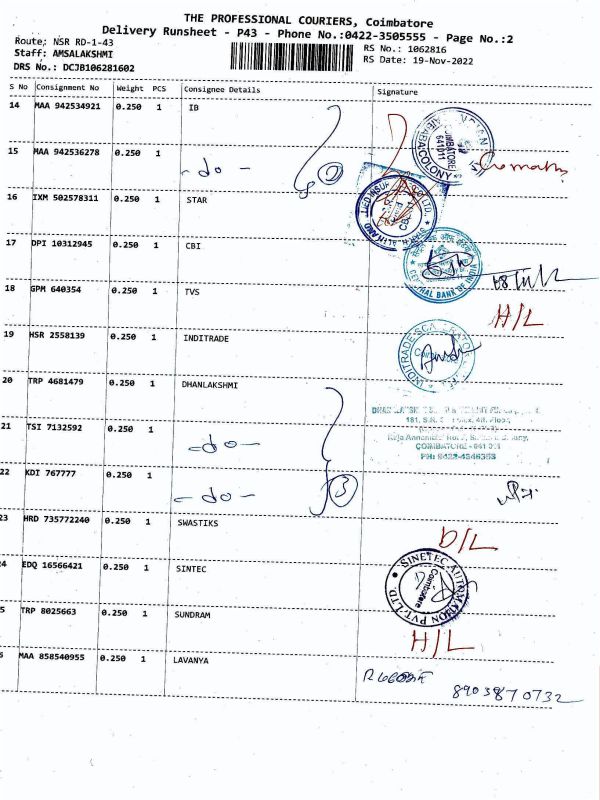 THE PROFESSIONAL COURIERS, Coimbatore
Delivery Runsheet - P43 - Phone No.:0422-3505555 - Page No.:2
Route: NSR RD-1-43
RS No.: 1062816
Staff: AMSALAKSHMI
RS Date: 19-Nov-2022
DRS No.: DCJB106281602
S No Consignment No Weight PCS Consignee Details Signature
14 MAA 942534921 0.250 1 IB
15 MAA 942536278 0.250 1 -do- 2
16 IXM 502578311 0.250 1 STAR
17 DPI 10312945 0.250 1 CBI
CENTRAL BANK OF INDIA
18 GPM 640354 0.250 1 TVS H/L
19 HSR 2558139 0.250 1 INDITRADE
20 TRP 4681479 0.250 1 DHANLAKSHMI
21 TSI 7132592 0.250 1 -do-
COIMBATORE - 641 011
PH: 0422-4346353
22 KDI 767777 0.250 1 -do- 3
23 HRD 735772240 0.250 1 SWASTIKS D/L
24 EDQ 16566421 0.250 1 SINTEC
SINETEC AUTOMATION PVT. LTD. Coimbatore
5 TRP 8025663 0.250 1 SUNDRAM H/L
6 MAA 858540955 0.250 1 LAVANYA
8903870732